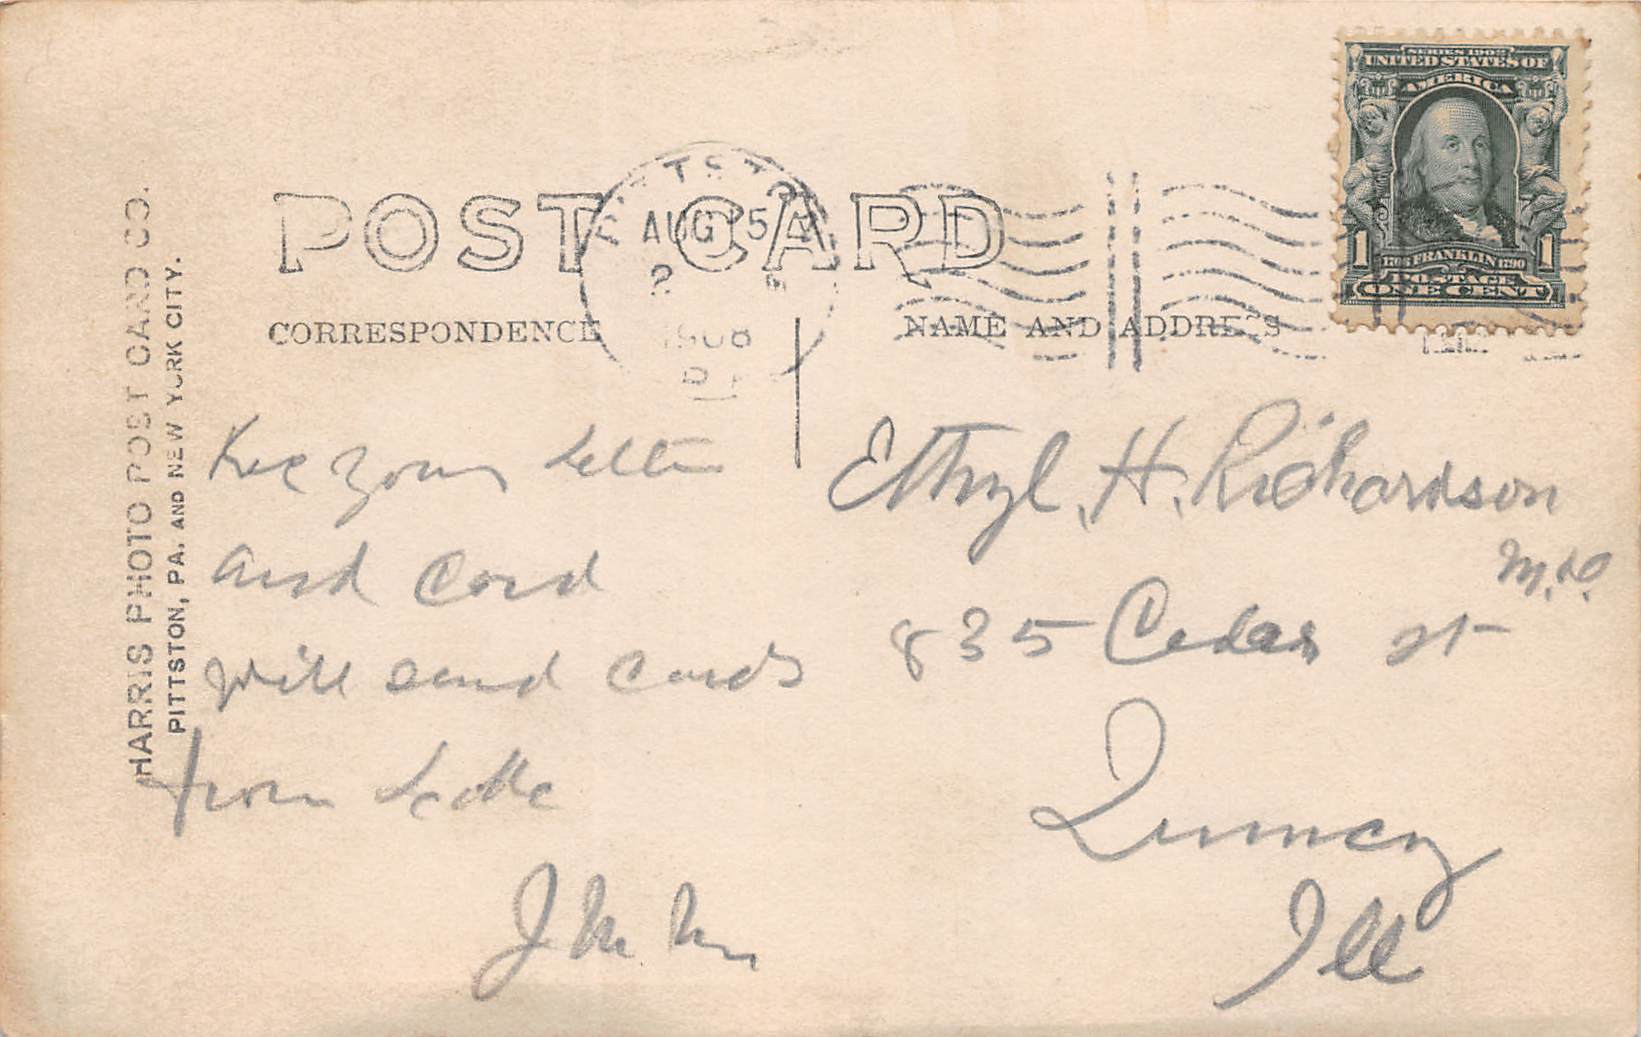 SERIES 1902
UNITED STATES OF
AMERICA
1706 FRANKLIN 1790
1 1
POSTAGE
ONE CENT
AUG 5
1908
POST CARD
CORRESPONDENCE
NAME AND ADDRESS
HARRIS PHOTO POST CARD CO.
PITTSTON, PA. AND NEW YORK CITY.
Rec your letter
and Card
Will send cards
from
J M
Ethyl. H. Richardson
M.D.
835 Cedar st
Quincy
Ill